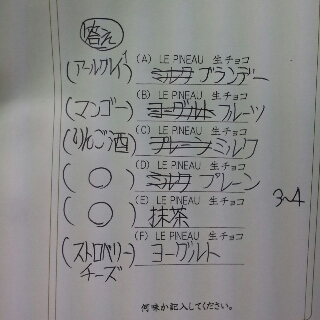 答え
(A) LE PINEAU 生チョコ
(アールグレイ) ミルク ブランデー
(B) LE PINEAU 生チョコ
(マンゴー) ヨーグルト フルーツ
(C) LE PINEAU 生チョコ
(りんご酒) プレーン ミルク
(D) LE PINEAU 生チョコ
(○) ミルク プレーン
(E) LE PINEAU 生チョコ
(○) 抹茶
3~4
(F) LE PINEAU 生チョコ
(ストロベリーチーズ) ヨーグルト
何味か記入してください。